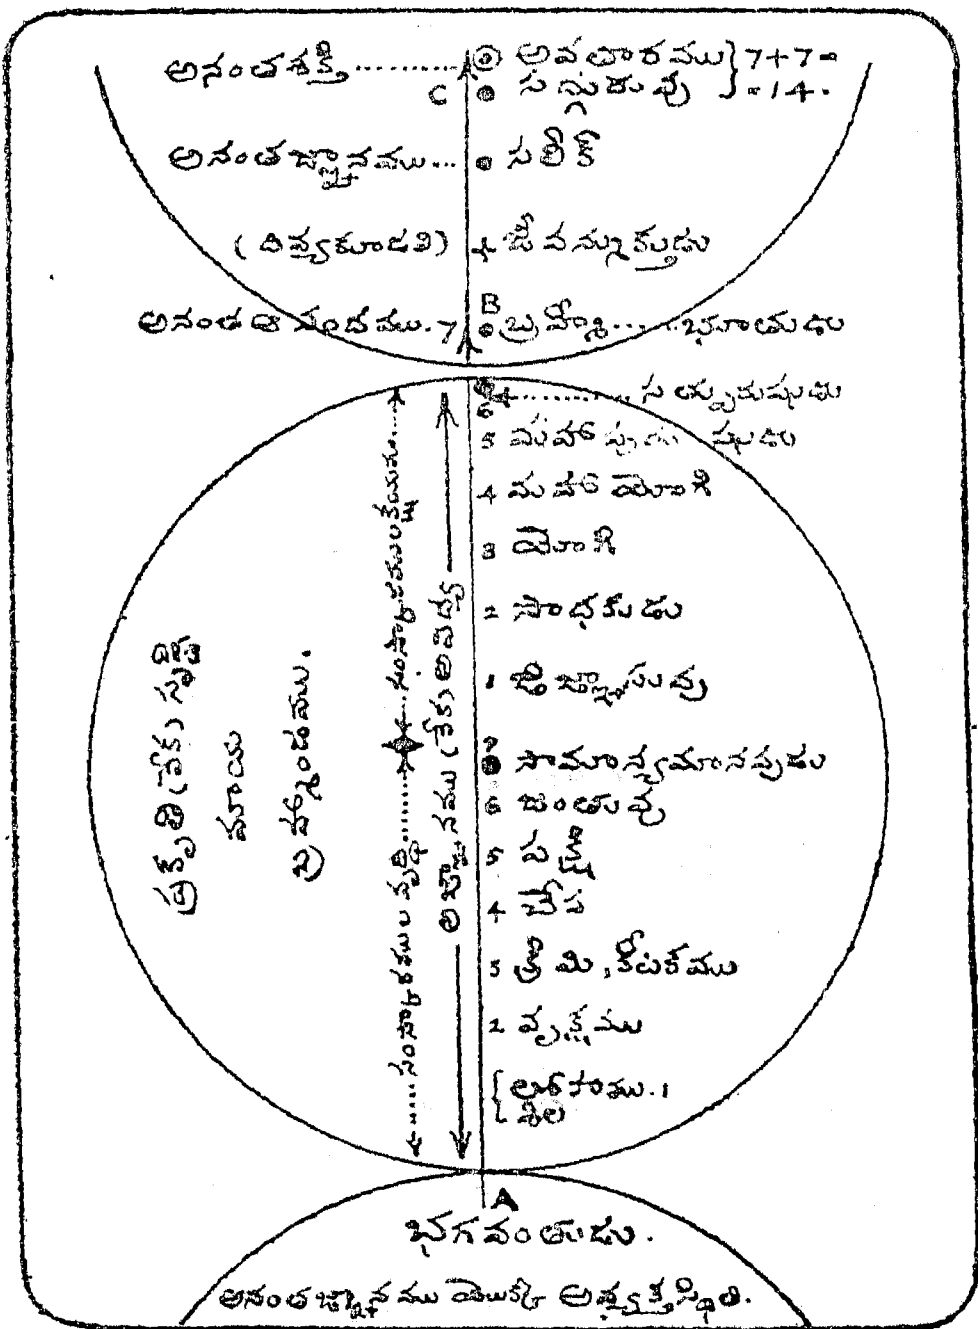 అనంతశక్తి .......... అవతారము } 7+7=
C సద్గురువు } =14.
అనంతజ్ఞానము... సలీక్
(దివ్యకూడలి) జీవన్ముక్తుడు
B
అనంత ఆనందము. 7 బ్రహ్మీ.......భూతుడు
6 ............ సత్పురుషుడు
5 మహాపురుషుడు
4 మహాయోగి
3 యోగి
2 సాధకుడు
1 జిజ్ఞాసువు
7 సామాన్యమానవుడు
6 జంతువు
5 పక్షి
4 చేప
3 క్రిమి, కీటకము
2 వృక్షము
{ లోహము. 1
శిల
ప్రకృతి (లేక) సృష్టి
మాయ
బ్రహ్మాండము.
సంస్కారముల వృద్ధి ......... సంస్కారములక్షయము
అజ్ఞానము (లేక) అవిద్య
A
భగవంతుడు.
అనంతజ్ఞానము యొక్క అవ్యక్తస్థితి.